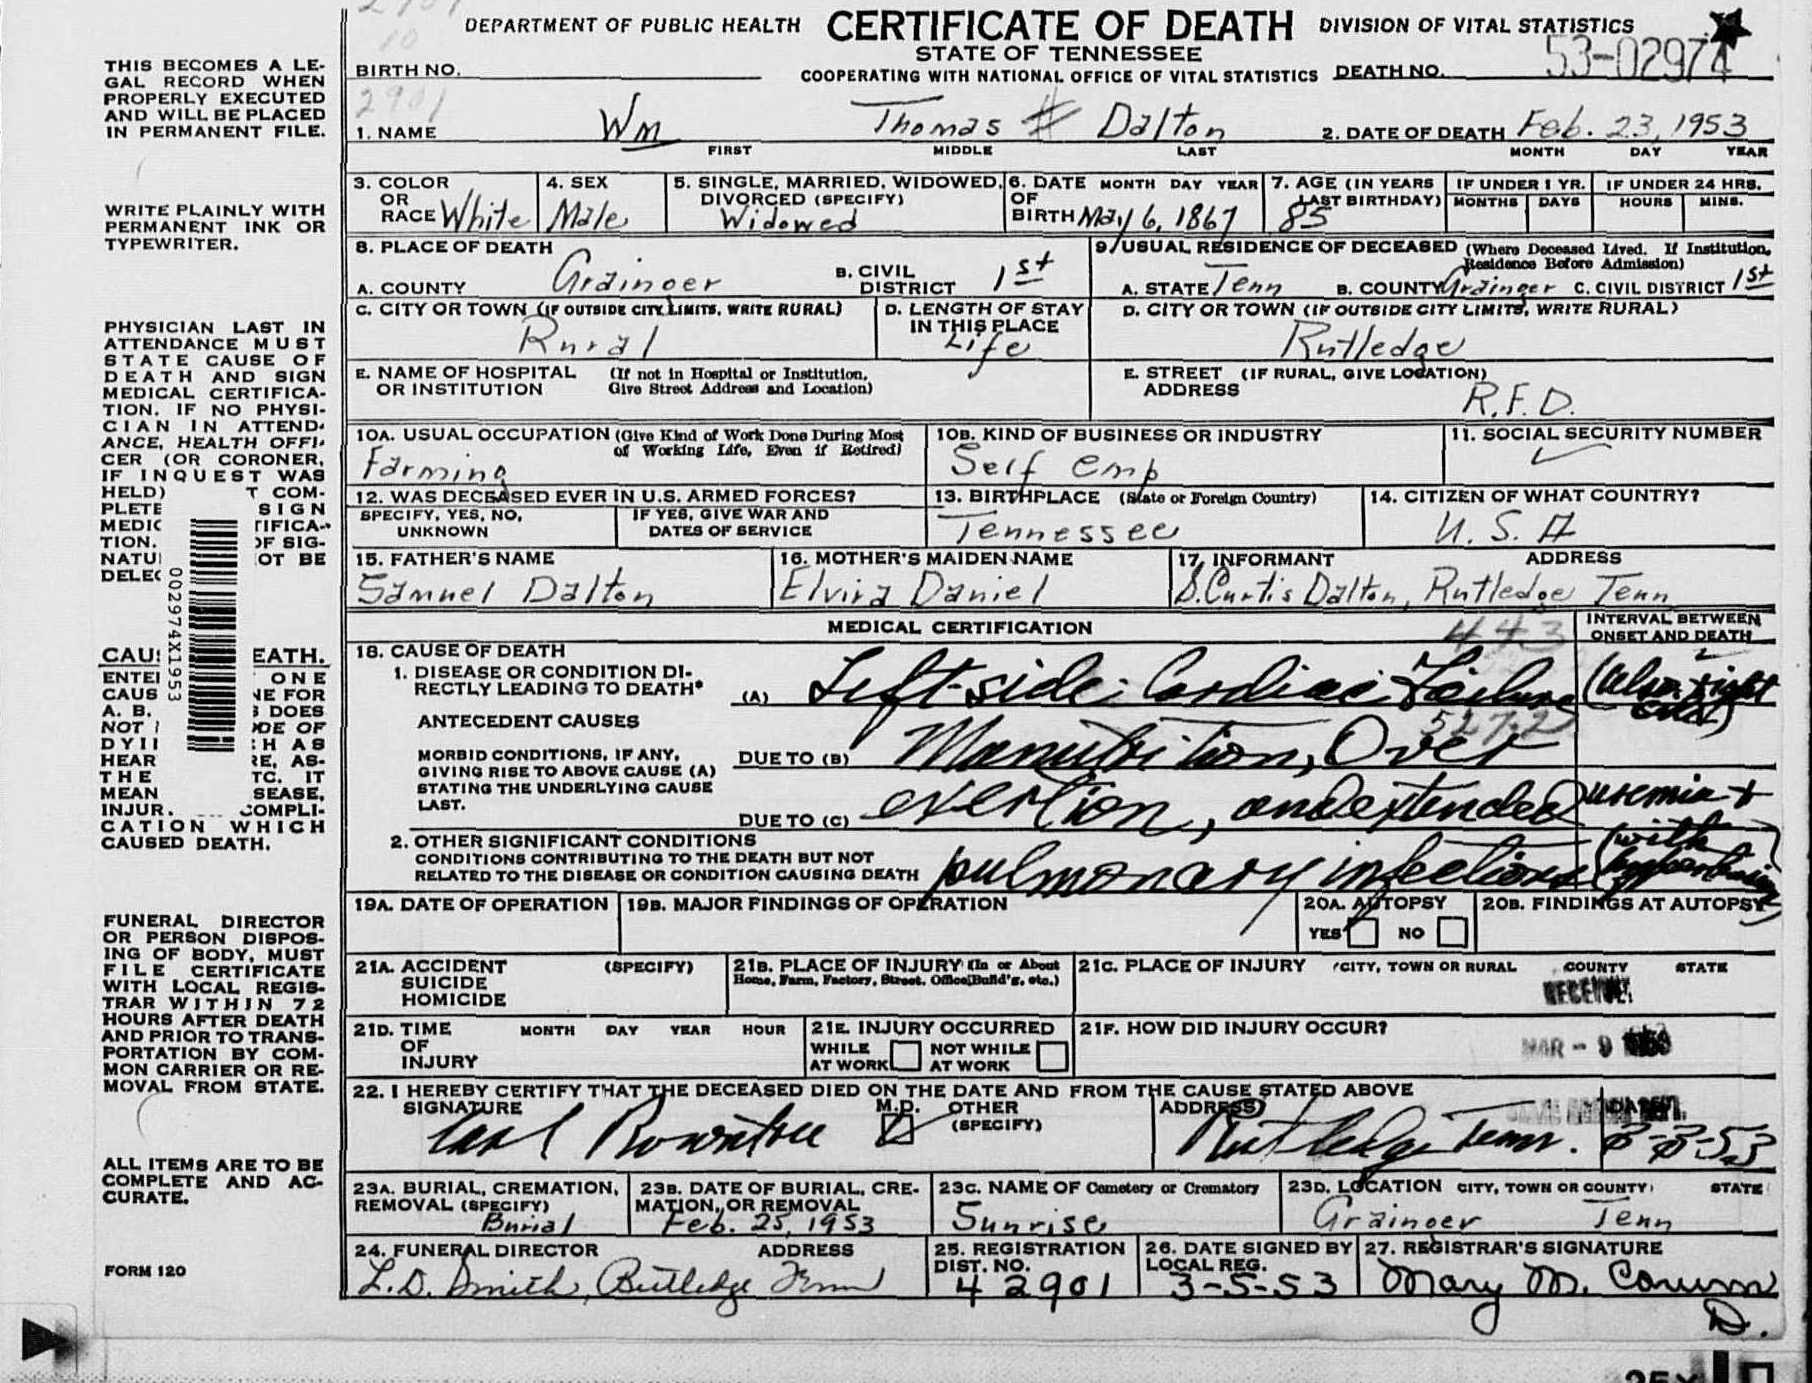 DEPARTMENT OF PUBLIC HEALTH CERTIFICATE OF DEATH DIVISION OF VITAL STATISTICS
STATE OF TENNESSEE
COOPERATING WITH NATIONAL OFFICE OF VITAL STATISTICS
BIRTH NO. DEATH NO. 53-02974
2901
1. NAME Wm Thomas Dalton 2. DATE OF DEATH Feb. 23, 1953
FIRST MIDDLE LAST MONTH DAY YEAR
3. COLOR OR RACE White
4. SEX Male
5. SINGLE, MARRIED, WIDOWED, DIVORCED (SPECIFY) Widowed
6. DATE OF BIRTH MONTH DAY YEAR May 6, 1867
7. AGE (IN YEARS LAST BIRTHDAY) 85
IF UNDER 1 YR. MONTHS DAYS
IF UNDER 24 HRS. HOURS MINS.
8. PLACE OF DEATH
A. COUNTY Grainger B. CIVIL DISTRICT 1st
9. USUAL RESIDENCE OF DECEASED (Where Deceased Lived. If Institution, Residence Before Admission)
A. STATE Tenn B. COUNTY Grainger C. CIVIL DISTRICT 1st
C. CITY OR TOWN (IF OUTSIDE CITY LIMITS, WRITE RURAL) Rural
D. LENGTH OF STAY IN THIS PLACE Life
D. CITY OR TOWN (IF OUTSIDE CITY LIMITS, WRITE RURAL) Rutledge
E. NAME OF HOSPITAL OR INSTITUTION (If not in Hospital or Institution, Give Street Address and Location)
E. STREET ADDRESS (IF RURAL, GIVE LOCATION) R.F.D.
10A. USUAL OCCUPATION (Give Kind of Work Done During Most of Working Life, Even if Retired) Farming
10B. KIND OF BUSINESS OR INDUSTRY Self emp
11. SOCIAL SECURITY NUMBER
12. WAS DECEASED EVER IN U.S. ARMED FORCES?
SPECIFY, YES, NO, UNKNOWN
IF YES, GIVE WAR AND DATES OF SERVICE
13. BIRTHPLACE (State or Foreign Country) Tennessee
14. CITIZEN OF WHAT COUNTRY? U.S.A
15. FATHER'S NAME Samuel Dalton
16. MOTHER'S MAIDEN NAME Elvira Daniel
17. INFORMANT ADDRESS S. Curtis Dalton, Rutledge Tenn
MEDICAL CERTIFICATION 443
INTERVAL BETWEEN ONSET AND DEATH
18. CAUSE OF DEATH
1. DISEASE OR CONDITION DIRECTLY LEADING TO DEATH* (A) Left-side Cardiac Failure (also right
ANTECEDENT CAUSES 527.2
MORBID CONDITIONS, IF ANY, GIVING RISE TO ABOVE CAUSE (A) STATING THE UNDERLYING CAUSE LAST.
DUE TO (B) Manutrition, Over
DUE TO (C) exertion, and extended uremia +
2. OTHER SIGNIFICANT CONDITIONS
CONDITIONS CONTRIBUTING TO THE DEATH BUT NOT RELATED TO THE DISEASE OR CONDITION CAUSING DEATH pulmonary infection (with hypertension)
19A. DATE OF OPERATION
19B. MAJOR FINDINGS OF OPERATION
20A. AUTOPSY YES NO
20B. FINDINGS AT AUTOPSY
21A. ACCIDENT SUICIDE HOMICIDE (SPECIFY)
21B. PLACE OF INJURY (In or About Home, Farm, Factory, Street, Office Build'g, etc.)
21C. PLACE OF INJURY (CITY, TOWN OR RURAL COUNTY STATE
RECEIVED
21D. TIME OF INJURY MONTH DAY YEAR HOUR
21E. INJURY OCCURRED WHILE AT WORK NOT WHILE AT WORK
21F. HOW DID INJURY OCCUR?
MAR - 9 1953
22. I HEREBY CERTIFY THAT THE DECEASED DIED ON THE DATE AND FROM THE CAUSE STATED ABOVE
SIGNATURE Carl Rowntree M.D. OTHER (SPECIFY)
ADDRESS Rutledge Tenn. 3-3-53
23A. BURIAL, CREMATION, REMOVAL (SPECIFY) Burial
23B. DATE OF BURIAL, CREMATION, OR REMOVAL Feb. 25, 1953
23C. NAME OF Cemetery or Crematory Sunrise
23D. LOCATION CITY, TOWN OR COUNTY) STATE Grainger Tenn
24. FUNERAL DIRECTOR ADDRESS L.D. Smith, Rutledge Tenn
25. REGISTRATION DIST. NO. 42901
26. DATE SIGNED BY LOCAL REG. 3-5-53
27. REGISTRAR'S SIGNATURE Mary M. Corum
D.
THIS BECOMES A LE-
GAL RECORD WHEN
PROPERLY EXECUTED
AND WILL BE PLACED
IN PERMANENT FILE.
WRITE PLAINLY WITH
PERMANENT INK OR
TYPEWRITER.
PHYSICIAN LAST IN
ATTENDANCE MUST
STATE CAUSE OF
DEATH AND SIGN
MEDICAL CERTIFICA-
TION. IF NO PHYSI-
CIAN IN ATTEND-
ANCE, HEALTH OFFI-
CER (OR CORONER,
IF INQUEST WAS
HELD) T COM-
PLETE SIGN
MEDIC TIFICA-
TION. OF SIG-
NATU OT BE
DELEC
002974X1953
CAU EATH.
ENTE ONE
CAUS NE FOR
A. B. DOES
NOT ODE OF
DYI H AS
HEAR RE, AS-
THE TC. IT
MEAN SEASE,
INJUR COMPLI-
CATION WHICH
CAUSED DEATH.
FUNERAL DIRECTOR
OR PERSON DISPOS-
ING OF BODY, MUST
FILE CERTIFICATE
WITH LOCAL REGIS-
TRAR WITHIN 72
HOURS AFTER DEATH
AND PRIOR TO TRANS-
PORTATION BY COM-
MON CARRIER OR RE-
MOVAL FROM STATE.
ALL ITEMS ARE TO BE
COMPLETE AND AC-
CURATE.
FORM 120